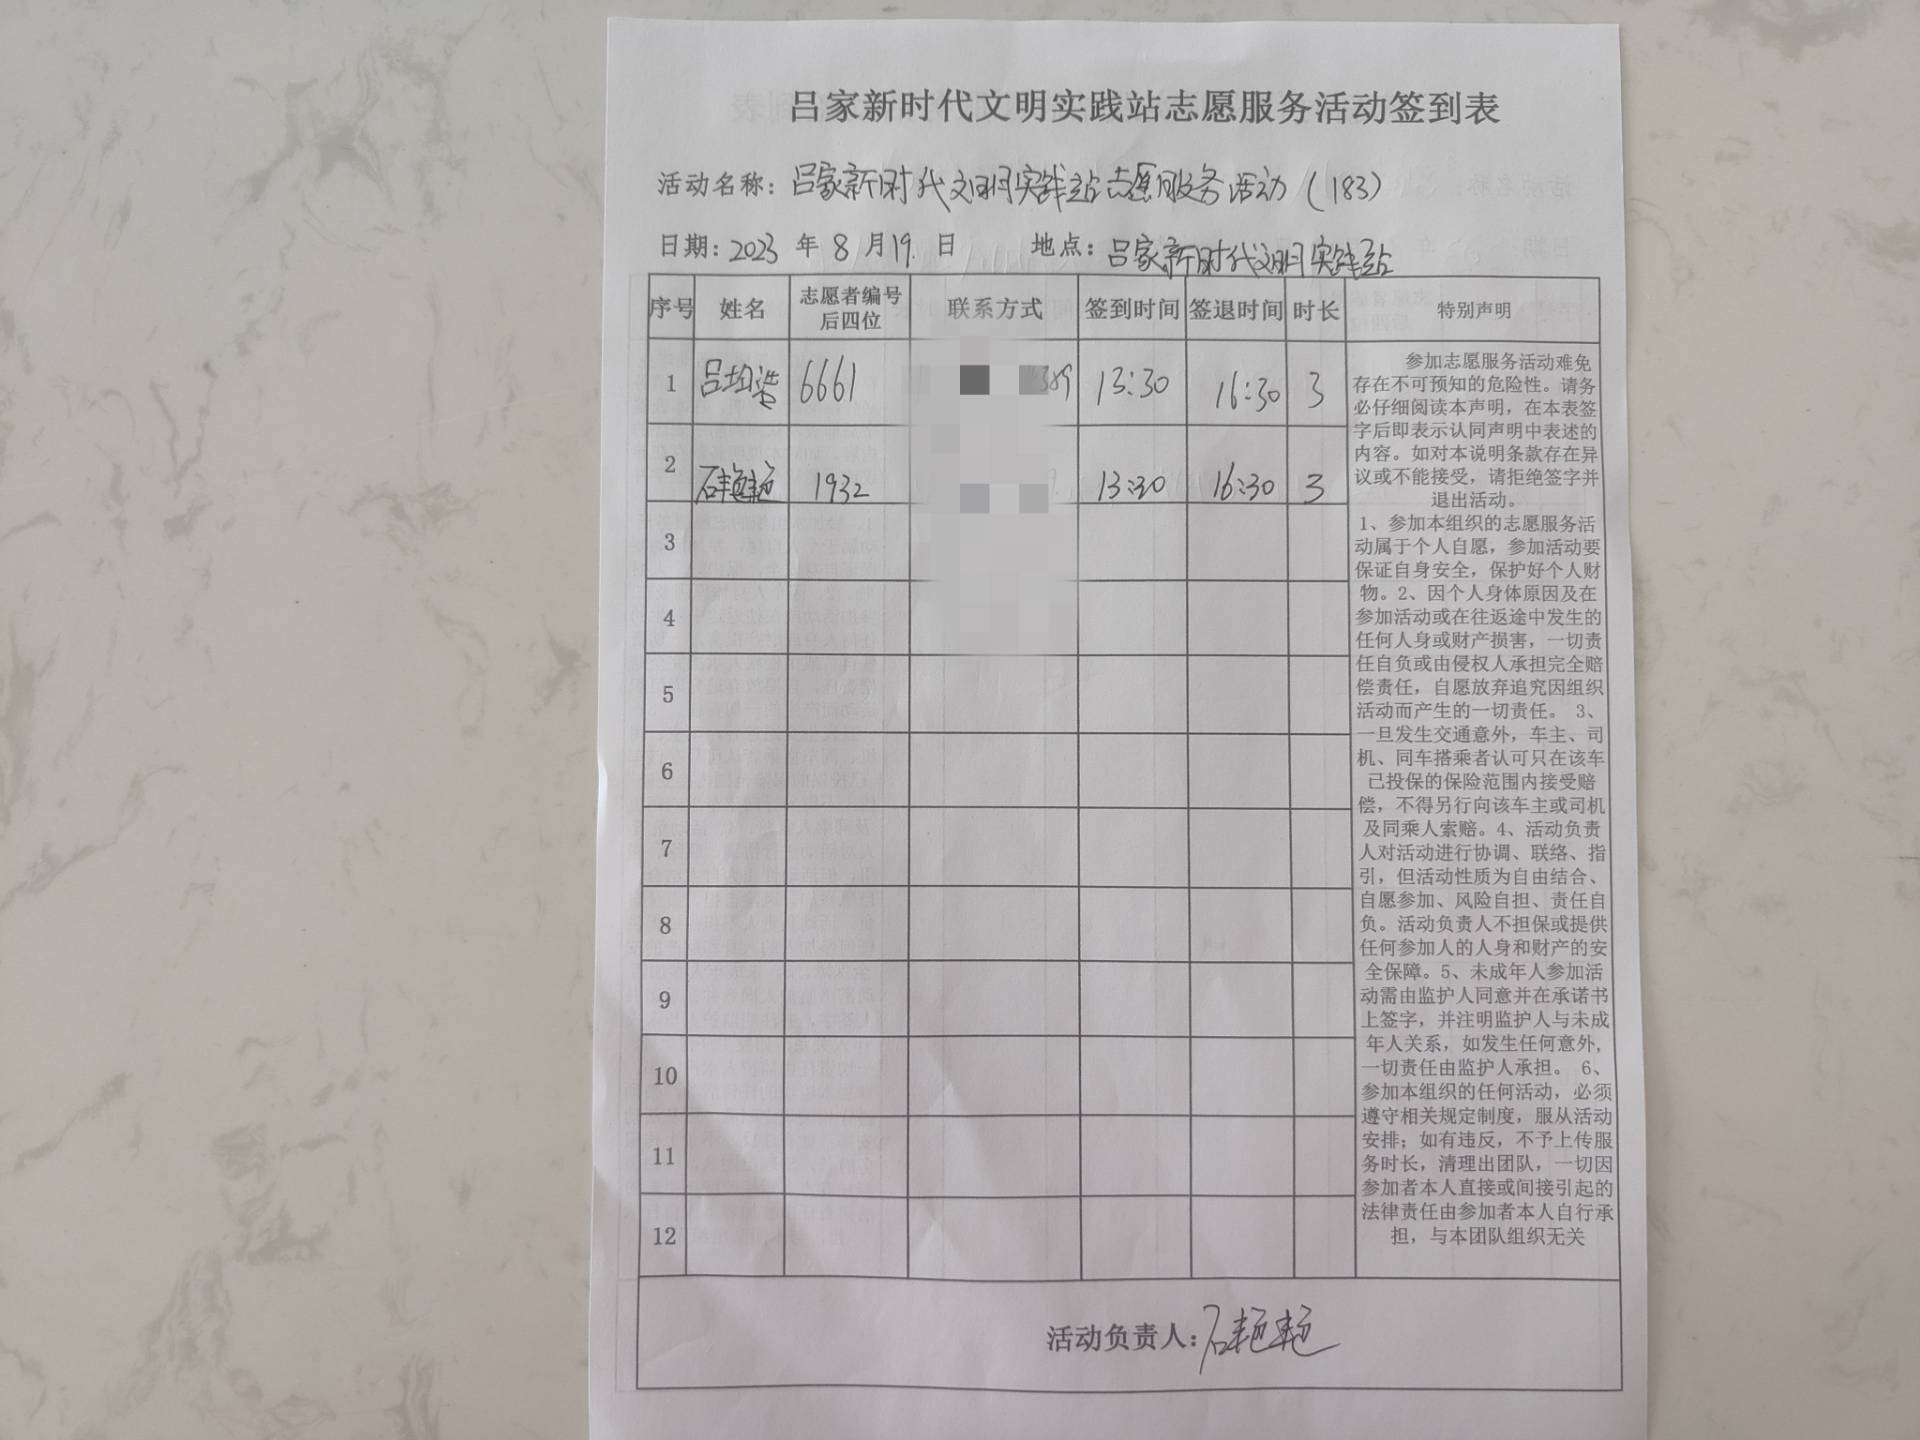 吕家新时代文明实践站志愿服务活动签到表
活动名称：吕家新时代文明实践站志愿服务活动（183）
日期：2023 年 8 月 19. 日 地点：吕家新时代文明实践站
序号 姓名 志愿者编号后四位 联系方式 签到时间 签退时间 时长 特别声明
1 吕均浩 6661 13:30 16:30 3
2 石艳艳 1932 13:30 16:30 3
3
4
5
6
7
8
9
10
11
12
参加志愿服务活动难免
存在不可预知的危险性。请务
必仔细阅读本声明，在本表签
字后即表示认同声明中表述的
内容。如对本说明条款存在异
议或不能接受，请拒绝签字并
退出活动。
1、参加本组织的志愿服务活
动属于个人自愿，参加活动要
保证自身安全，保护好个人财
物。2、因个人身体原因及在
参加活动或在往返途中发生的
任何人身或财产损害，一切责
任自负或由侵权人承担完全赔
偿责任，自愿放弃追究因组织
活动而产生的一切责任。 3、
一旦发生交通意外，车主、司
机、同车搭乘者认可只在该车
已投保的保险范围内接受赔
偿，不得另行向该车主或司机
及同乘人索赔。4、活动负责
人对活动进行协调、联络、指
引，但活动性质为自由结合、
自愿参加、风险自担、责任自
负。活动负责人不担保或提供
任何参加人的人身和财产的安
全保障。5、未成年人参加活
动需由监护人同意并在承诺书
上签字，并注明监护人与未成
年人关系，如发生任何意外，
一切责任由监护人承担。 6、
参加本组织的任何活动，必须
遵守相关规定制度，服从活动
安排；如有违反，不予上传服
务时长，清理出团队，一切因
参加者本人直接或间接引起的
法律责任由参加者本人自行承
担，与本团队组织无关
活动负责人：石艳艳